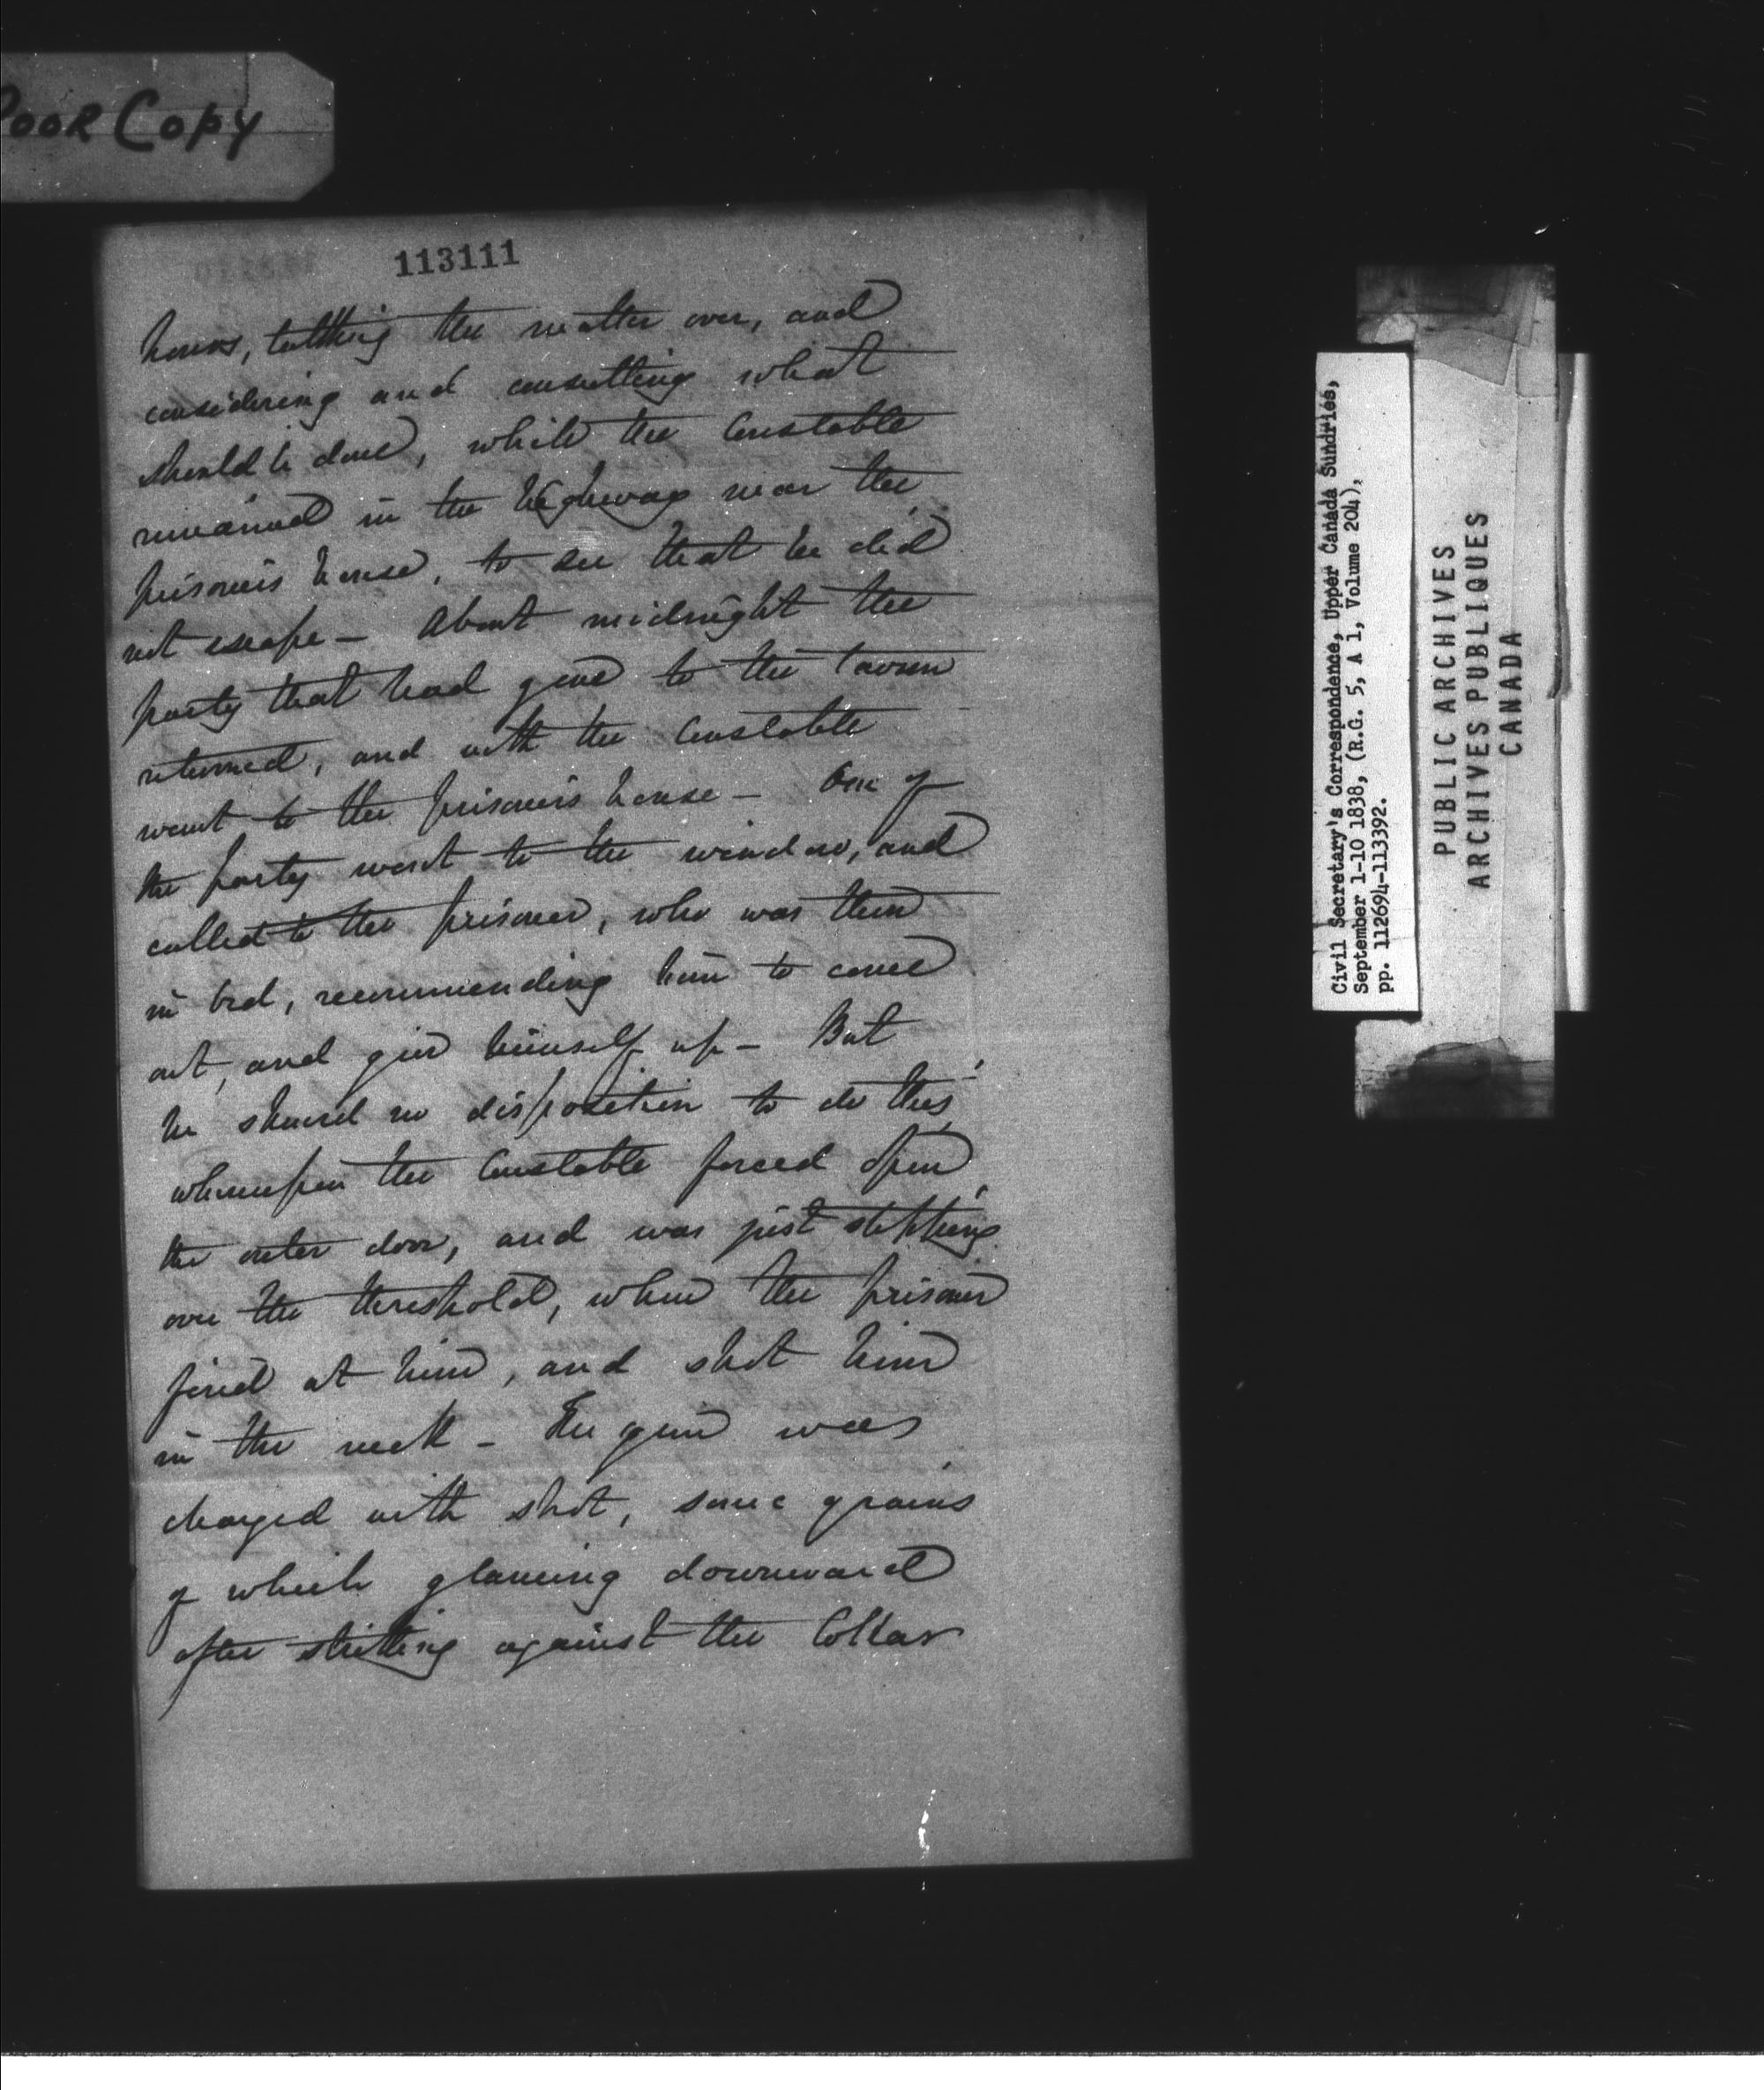 Poor Copy
113111
hours, talking the matter over, and
considering and consulting what
should be done, while the Constable
remained in the highway near the
prisoner's house, to see that he did
not escape — About midnight the
party that had gone to the tavern
returned, and with the Constable
went to the prisoner's house — One of
the party went to the window, and
called to the prisoner, who was then
in bed, recommending him to come
out, and give himself up — But
he shewed no disposition to do this,
whereupon the Constable forced open
the outer door, and was just stepping
over the threshold, when the prisoner
fired at him, and shot him
in the neck — The gun was
charged with shot, some grains
of which glancing downward
after striking against the Collar
Civil Secretary's Correspondence, Upper Canada Sundries,
September 1-10 1838, (R.G. 5, A 1, Volume 204),
pp. 112694-113392.
PUBLIC ARCHIVES
ARCHIVES PUBLIQUES
CANADA